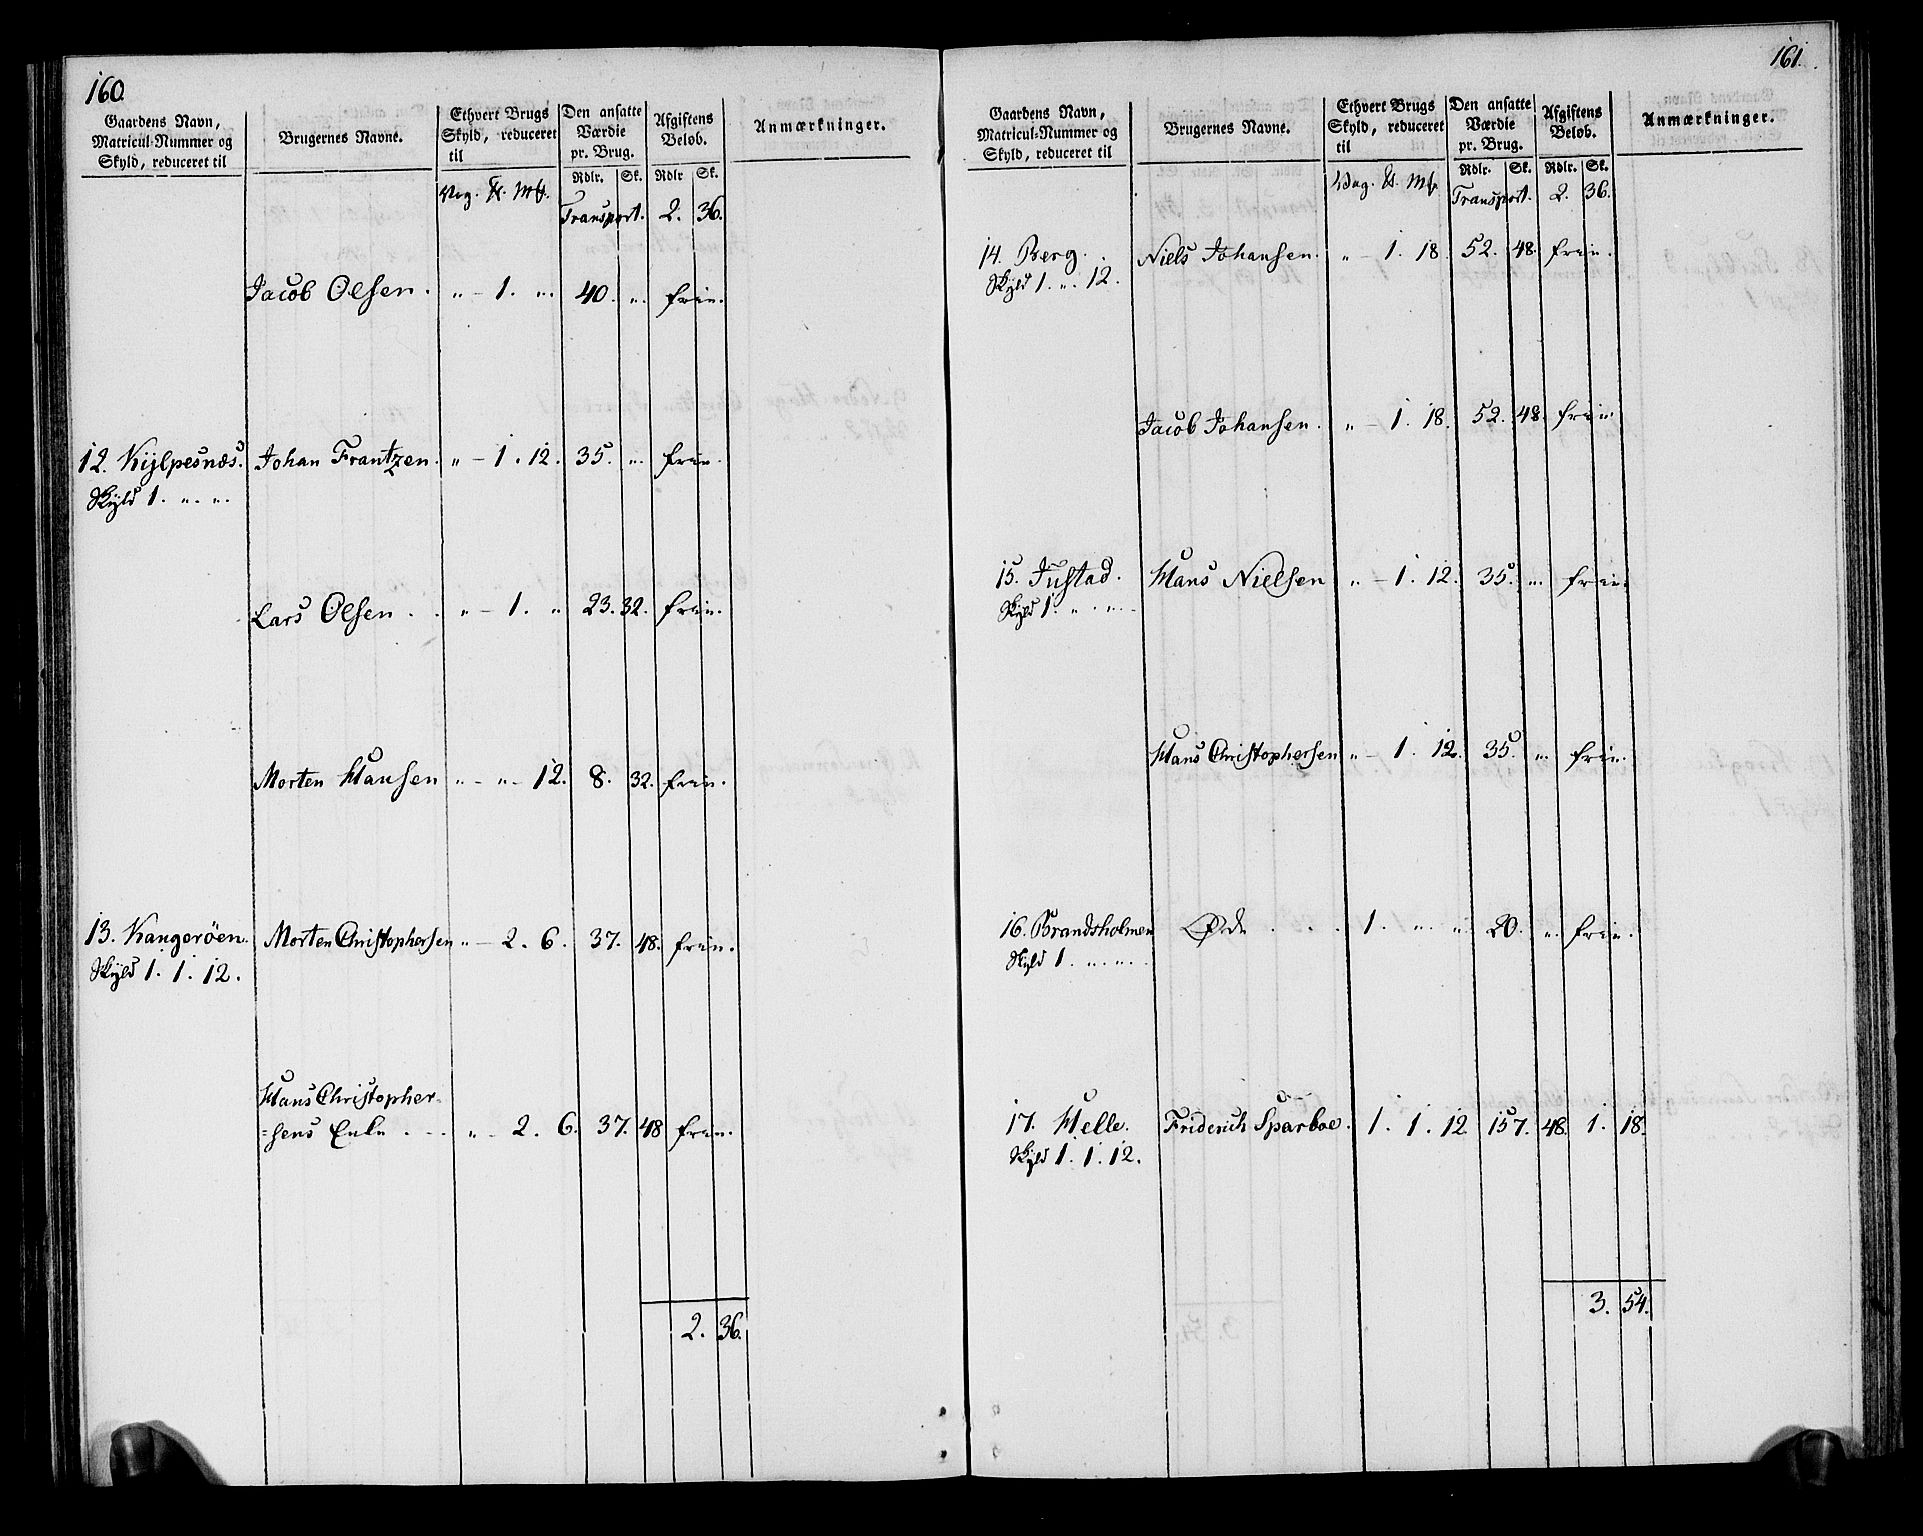 160.
Gaardens Navn, Matricul-Nummer og Skyld, reduceret til
Brugernes Navne.
Ethvert Brugs Skyld, reduceret til
Den ansatte Værdie pr. Brug.
Afgiftens Beløb.
Anmærkninger.
Rdlr. Sk. Rdlr Sk.
Vog. ℔. Mk.
Transport. 2. 36.
Jacob Olsen. „ – 1. „. 40. „. frie.
12. Kijlpesnæs. Johan Frantzen. „ – 1. 12. 35. „. frie.
Skyld 1. „. „.
Lars Olsen . . „ – 1. „ 23. 32. frie.
Morten Hansen „ – „ – 12. 8. 32. frie.
13. Kangerøen. Morten Christophersen „ – 2. 6. 37. 48. frie.
Skyld 1. 1. 12.
Hans Christopher=
=sens Enke . – . „ – 2. 6. 37. 48 frie.
2. 36.
161.
Gaardens Navn, Matricul-Nummer og Skyld, reduceret til
Brugernes Navne.
Ethvert Brugs Skyld, reduceret til
Den ansatte Værdie pr. Brug.
Afgiftens Beløb.
Anmærkninger.
Rdlr. Sk. Rdlr. Sk.
Vog. ℔. Mk.
Transport. 2. 36.
14. Berg. Niels Johansen. „ – 1. 18. 52. 48. frie.
Skyld 1. „. 12.
Jacob Johansen. „ – 1. 18. 52. 48. frie.
15. Justad. Hans Nielsen „ – 1. 12. 35. „. frie.
Skyld 1. „. „.
Hans Christophersen „ – 1. 12. 35. „. frie.
16. Brandsholmen Øde . . . 1. „. „. 20. „. frie.
Skyld 1. „. „.
17. Helle. Friderich Sparboe. 1. 1. 12 157. 48. 1. 18.
Skyld 1. 1. 12.
3. 54.